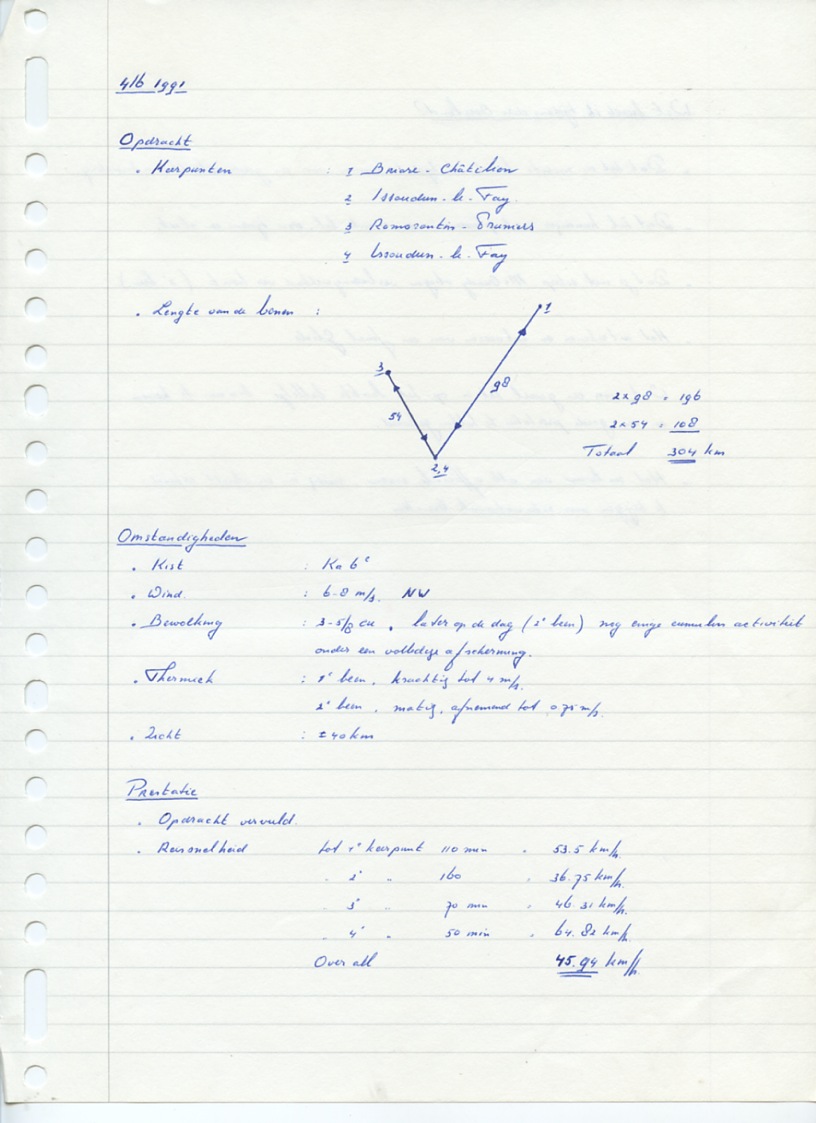 4/6 1991
Opdracht
. Keerpunten : 1 Briare - Châtillon
2 Issoudun - le - Fay.
3 Romorantin - Prunieres
4 Issoudun - le - Fay
. Lengte van de benen :
1
3
98
54
2,4
2 x 98 = 196
2 x 54 = 108
Totaal 304 km
Omstandigheden
. Kist : Ka 6e
. Wind. : 6-8 m/s. NW
. Bewolking : 3-5/8 cu . later op de dag (2e been) nog enige cumulus activiteit
onder een volledige afscherming.
. Thermiek : 1e been , krachtig tot 4 m/s.
2e been , matig, afnemend tot 0.75 m/s.
. Zicht : ± 40 km
Prestatie
. Opdracht vervuld.
. Reissnelheid tot 1e keerpunt 110 min . 53.5 km/h.
" 2e " 160 " 36.75 km/h.
" 3e " 70 min " 46.31 km/h.
" 4e " 50 min " 64.82 km/h.
Over all 45.94 km/h.